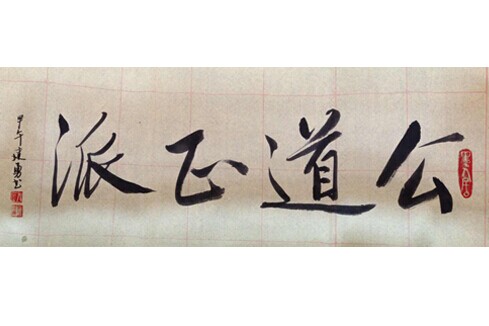 公道正派
甲午建勇书